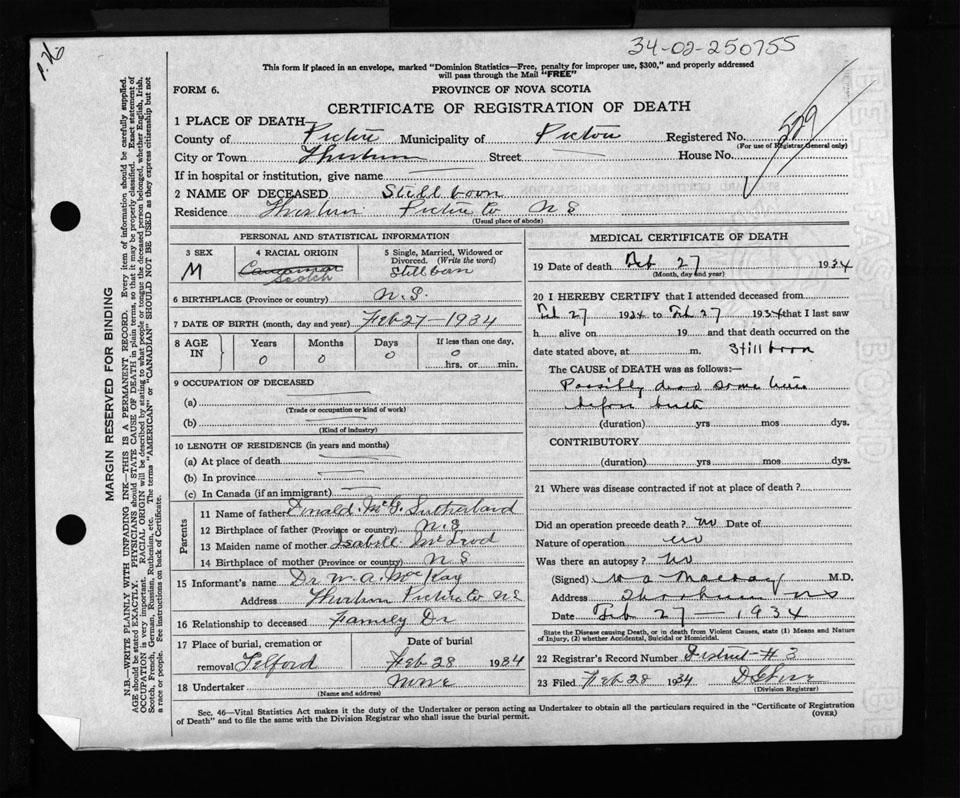 34-02-250755
This form if placed in an envelope, marked "Dominion Statistics—Free, penalty for improper use, $300," and properly addressed
will pass through the Mail "FREE"
FORM 6. PROVINCE OF NOVA SCOTIA
CERTIFICATE OF REGISTRATION OF DEATH
529
1 PLACE OF DEATH—
County of Pictou Municipality of Pictou Registered No.
(For use of Registrar General only)
City or Town Thorburn Street House No.
If in hospital or institution, give name
2 NAME OF DECEASED Stillborn
Residence Thorburn Pictou Co N S
(Usual place of abode)
PERSONAL AND STATISTICAL INFORMATION
3 SEX 4 RACIAL ORIGIN 5 Single, Married, Widowed or
Divorced. (Write the word)
M Scotch Stillborn
6 BIRTHPLACE (Province or country) N.S.
7 DATE OF BIRTH (month, day and year) Feb 27—1934
8 AGE IN Years Months Days If less than one day,
0 0 0 0
hrs. or min.
9 OCCUPATION OF DECEASED
(a)
(Trade or occupation or kind of work)
(b)
(Kind of industry)
10 LENGTH OF RESIDENCE (in years and months)
(a) At place of death
(b) In province
(c) In Canada (if an immigrant)
Parents
11 Name of father Donald McG. Sutherland
12 Birthplace of father (Province or country) N.S
13 Maiden name of mother Isabell McLeod
14 Birthplace of mother (Province or country) N S
15 Informant's name Dr W. A. MacKay
Address Thorburn Pictou Co N.S
16 Relationship to deceased Family Dr
17 Place of burial, cremation or Date of burial
removal Telford Feb 28 1934
18 Undertaker None
(Name and address)
MEDICAL CERTIFICATE OF DEATH
19 Date of death Feb 27 1934
(Month, day and year)
20 I HEREBY CERTIFY that I attended deceased from
Feb 27 1934 to Feb 27 1934 that I last saw
h alive on 19 and that death occurred on the
date stated above, at m. Stillborn
The CAUSE of DEATH was as follows:—
Possibly dead some time
before birth
(duration) yrs mos dys.
CONTRIBUTORY
(duration) yrs mos dys.
21 Where was disease contracted if not at place of death?
Did an operation precede death? no Date of
Nature of operation no
Was there an autopsy? no
(Signed) W A MacKay M.D.
Address Thorburn NS
Date Feb 27—1934
State the Disease causing Death, or in death from Violent Causes, state (1) Means and Nature
of Injury, (2) whether Accidental, Suicidal or Homicidal.
22 Registrar's Record Number District #3
23 Filed Feb 28 1934
(Division Registrar)
Sec. 46—Vital Statistics Act makes it the duty of the Undertaker or person acting as Undertaker to obtain all the particulars required in the "Certificate of Registration
of Death" and to file the same with the Division Registrar who shall issue the burial permit. (OVER)
MARGIN RESERVED FOR BINDING
N.B.—WRITE PLAINLY WITH UNFADING INK—THIS IS A PERMANENT RECORD. Every item of information should be carefully supplied.
AGE should be stated EXACTLY. PHYSICIANS should STATE CAUSE OF DEATH in plain terms, so that it may be properly classified. Exact statement of
OCCUPATION is very important. RACIAL ORIGIN will be described by stating to what people or tongue the deceased person belonged, whether English, Irish,
Scotch, French, German, Russian, Ruthenian, etc. The terms "AMERICAN" or "CANADIAN" SHOULD NOT BE USED as they express citizenship but not
a race or people. See instructions on back of Certificate.